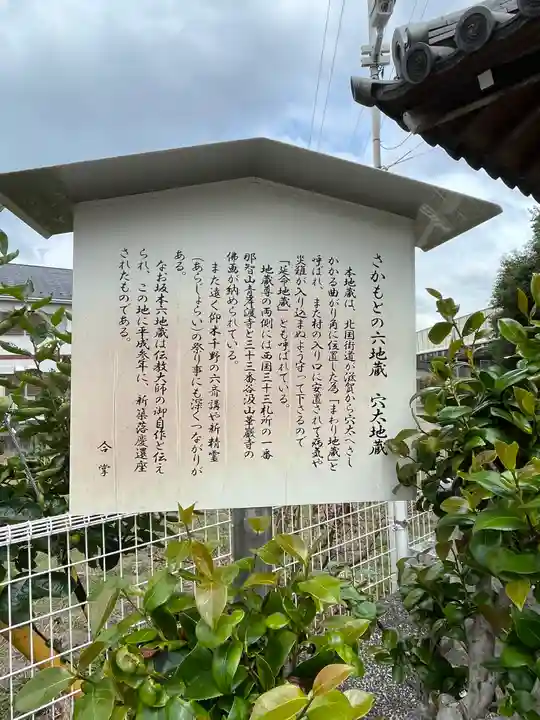 さかもとの六地蔵 穴太地蔵
本地蔵は、北国街道が滋賀から穴太へさし
かかる曲がり角に位置した為「まわり地蔵」と
呼ばれ、また村の入り口に安置されて病気や
災難が入り込まぬよう守って下さるので
「延命地蔵」とも呼ばれている。
地蔵尊の両側には西国三十三札所の一番
那智山青岸渡寺と三十三番谷汲山華厳寺の
佛画が納められている。
また遠く仰木千野の六斎講や新精霊
(あらしょらい)の祭り事にも深くつながりが
ある。
なお坂本六地蔵は伝教大師の御自作と伝え
られ、この地に平成参年に、新築落慶遷座
されたものである。
合掌